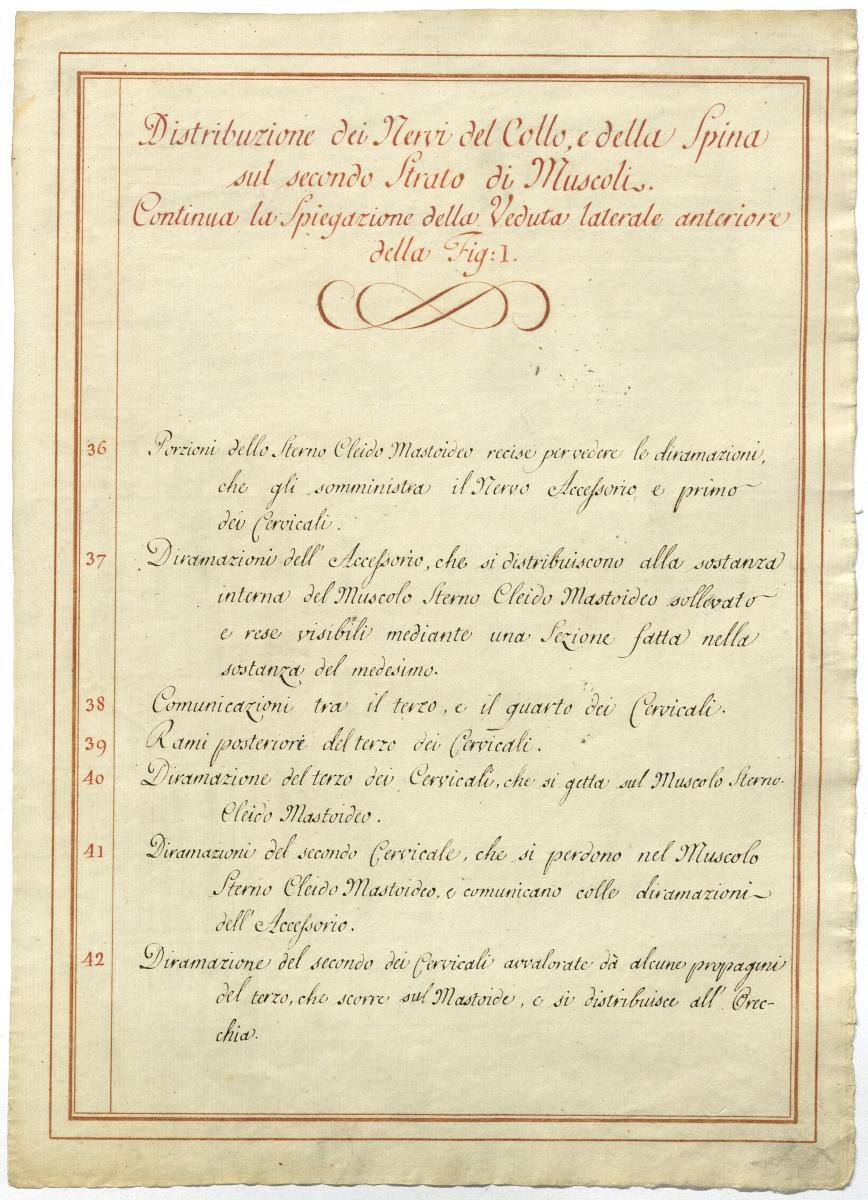 Distribuzione dei Nervi del Collo, e della Spina
sul secondo Strato di Muscoli.
Continua la Spiegazione della Veduta laterale anteriore
della Fig: 1.
36 Porzioni dello Sterno Cleido Mastoideo recise per vedere le diramazioni,
che gli somministra il Nervo Accessorio, e primo
dei Cervicali.
37 Diramazioni dell' Accessorio, che si distribuiscono alla sostanza
interna del Muscolo Sterno Cleido Mastoideo sollevato
e rese visibili mediante una Sezione fatta nella
sostanza del medesimo.
38 Comunicazioni tra il terzo, e il quarto dei Cervicali.
39 Rami posteriori del terzo dei Cervicali.
40 Diramazione del terzo dei Cervicali, che si getta sul Muscolo Sterno-
Cleido Mastoideo.
41 Diramazioni del secondo Cervicale, che si perdono nel Muscolo
Sterno Cleido Mastoideo, e comunicano colle diramazioni
dell' Accessorio.
42 Diramazione del secondo dei Cervicali avvalorate dà alcune propagini
del terzo, che scorre sul Mastoide, e si distribuisce all' Orec-
chia.